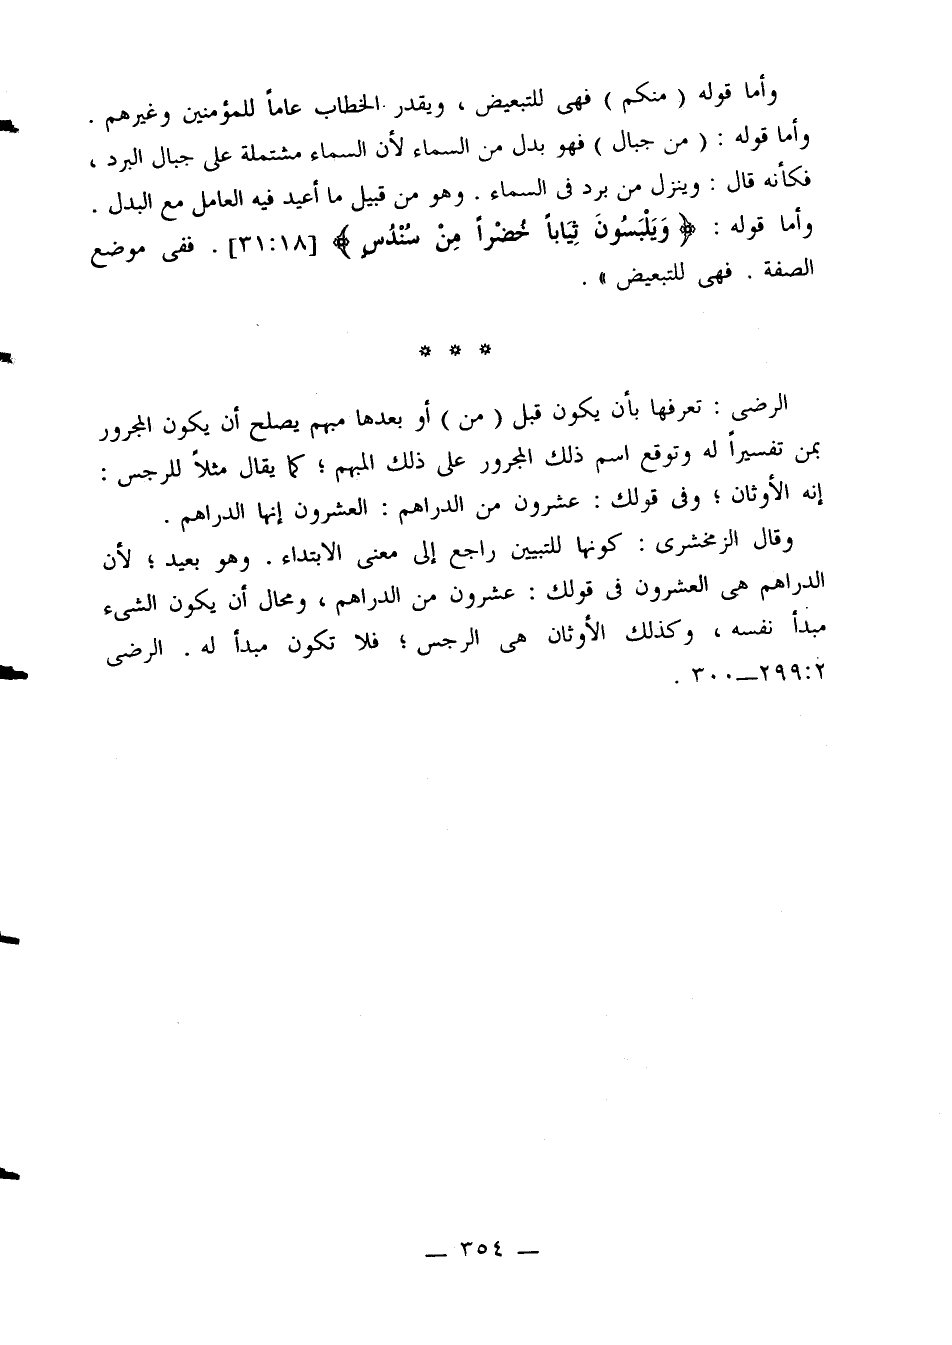 وأما قوله ( منكم ) فهى للتبعيض ، ويقدر الخطاب عاماً للمؤمنين وغيرهم .
وأما قوله : ( من جبال ) فهو بدل من السماء لأن السماء مشتملة على جبال البرد ،
فكأنه قال : وينزل من برد فى السماء . وهو من قبيل ما أعيد فيه العامل مع البدل .
وأما قوله : ﴿ وَيَلْبَسُونَ ثِيَاباً خُضْراً مِنْ سُنْدُسٍ ﴾ [٣١:١٨] . ففى موضع
الصفة . فهى للتبعيض » .
* * *
الرضى : تعرفها بأن يكون قبل ( من ) أو بعدها مبهم يصلح أن يكون المجرور
بمن تفسيراً له وتوقع اسم ذلك المجرور على ذلك المبهم ؛ كما يقال مثلاً للرجس :
إنه الأوثان ؛ وفى قولك : عشرون من الدراهم : العشرون إنها الدراهم .
وقال الزمخشرى : كونها للتبيين راجع إلى معنى الابتداء . وهو بعيد ؛ لأن
الدراهم هى العشرون فى قولك : عشرون من الدراهم ، ومحال أن يكون الشىء
مبدأ نفسه ، وكذلك الأوثان هى الرجس ؛ فلا تكون مبدأ له . الرضى
٢٩٩:٢—٣٠٠ .
— ٣٥٤ —